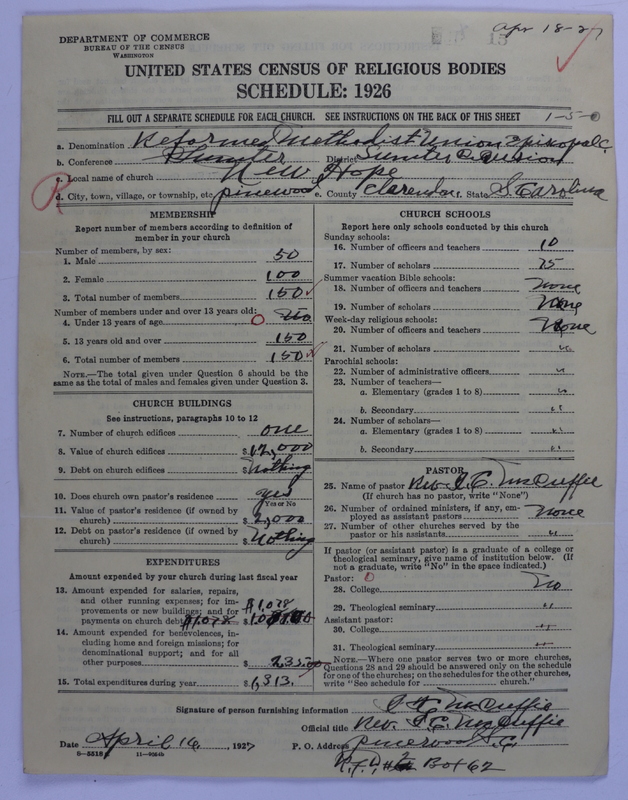 Apr 18-27
15
DEPARTMENT OF COMMERCE
BUREAU OF THE CENSUS
WASHINGTON
UNITED STATES CENSUS OF RELIGIOUS BODIES
SCHEDULE: 1926
FILL OUT A SEPARATE SCHEDULE FOR EACH CHURCH. SEE INSTRUCTIONS ON THE BACK OF THIS SHEET
1-5-0
a. Denomination Reformed Methodist Union Episcopal C.
b. Conference Sumter District Sumter Division
c. Local name of church New Hope
d. City, town, village, or township, etc. pinewood e. County Clarendon f. State S. Carolina
R
MEMBERSHIP
Report number of members according to definition of
member in your church
Number of members, by sex:
1. Male 50
2. Female 100
3. Total number of members 150
Number of members under and over 13 years old:
4. Under 13 years of age 0 no
5. 13 years old and over 150
6. Total number of members 150
NOTE.—The total given under Question 6 should be the
same as the total of males and females given under Question 3.
CHURCH BUILDINGS
See instructions, paragraphs 10 to 12
7. Number of church edifices one
8. Value of church edifices $12,000
9. Debt on church edifices $Nothing
10. Does church own pastor's residence yes
Yes or No
11. Value of pastor's residence (if owned by
church) $2,000
12. Debt on pastor's residence (if owned by
church) $Nothing
EXPENDITURES
Amount expended by your church during last fiscal year
13. Amount expended for salaries, repairs,
and other running expenses; for im-
provements or new buildings; and for $1,078
payments on church debt $1,078 $
14. Amount expended for benevolences, in-
cluding home and foreign missions; for
denominational support; and for all
other purposes $235.00
15. Total expenditures during year $1,313.
CHURCH SCHOOLS
Report here only schools conducted by this church
Sunday schools:
16. Number of officers and teachers 10
17. Number of scholars 75
Summer vacation Bible schools:
18. Number of officers and teachers None
19. Number of scholars None
Week-day religious schools:
20. Number of officers and teachers None
21. Number of scholars "
Parochial schools:
22. Number of administrative officers "
23. Number of teachers—
a. Elementary (grades 1 to 8) "
b. Secondary "
24. Number of scholars—
a. Elementary (grades 1 to 8) "
b. Secondary "
PASTOR
25. Name of pastor Rev. I. C. McDuffie
(If church has no pastor, write "None")
26. Number of ordained ministers, if any, em-
ployed as assistant pastors None
27. Number of other churches served by the
pastor or his assistants "
If pastor (or assistant pastor) is a graduate of a college or
theological seminary, give name of institution below. (If
not a graduate, write "No" in the space indicated.)
Pastor: 0
28. College No
29. Theological seminary "
Assistant pastor:
30. College "
31. Theological seminary "
NOTE.—Where one pastor serves two or more churches,
Questions 28 and 29 should be answered only on the schedule
for one of the churches; on the schedules for the other churches,
write "See schedule for church."
Signature of person furnishing information I. C. McDuffie
Official title Rev. I. C. McDuffie
Date April 16, 1927 P. O. Address pinewood S.C.
R.F.D. #2 Box 62